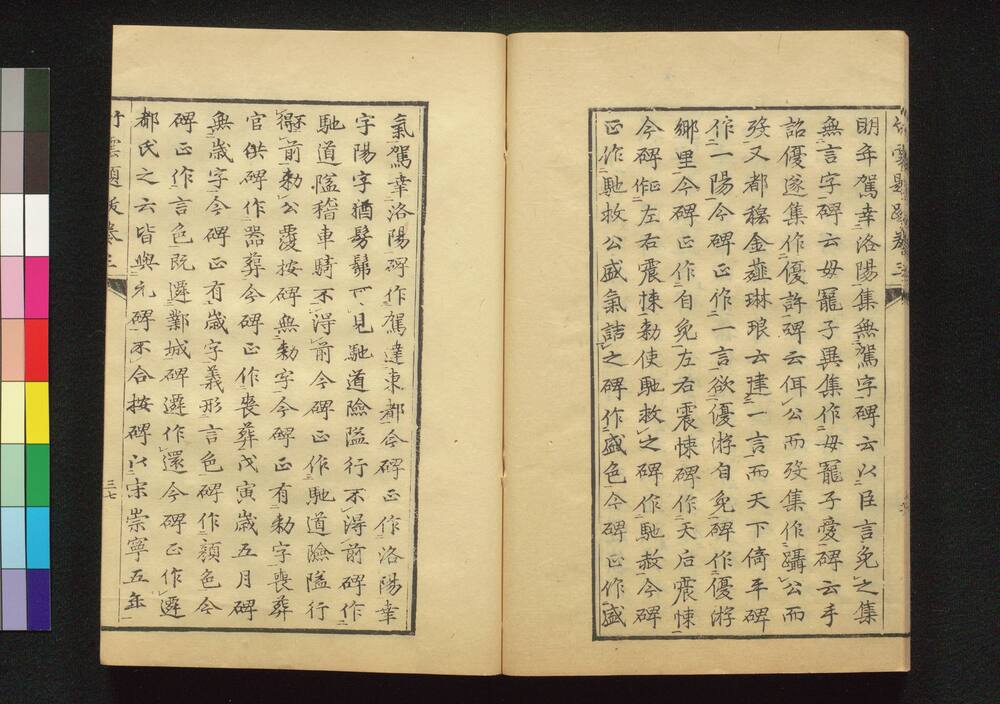 竹雲題跋卷三
明年駕幸洛陽集無駕字碑云以臣言免之集
無言字碑云毋寵子異集作毋寵子愛碑云手
詔優遂集作優許碑云佴公而歿集作躡公而
歿又都穆金薤琳琅云建一言而天下倚平碑
作一陽今碑正作一言欲優游自免碑作優游
鄉里今碑正作自免左右震悚碑作天后震悚
今碑正作左右震悚勑使馳救之碑作馳赦今碑
正作馳救公盛氣詰之碑作盛色今碑正作盛
氣駕幸洛陽碑作駕達東都今碑正作洛陽幸
字陽字猶髣髴可見馳道險隘行不得前碑作
馳道隘稽車騎不得前今碑正作馳道險隘行
不得前勑公覆按碑無勑字今碑正有勑字喪葬
官供碑作器葬今碑正作喪葬戊寅歲五月碑
無歲字今碑正有歲字義形言色碑作顏色今
碑正作言色既遷鄴城碑遷作還今碑正作遷
都氏之云皆與元碑不合按碑以宋崇寧五年
竹雲題跋卷三
三七